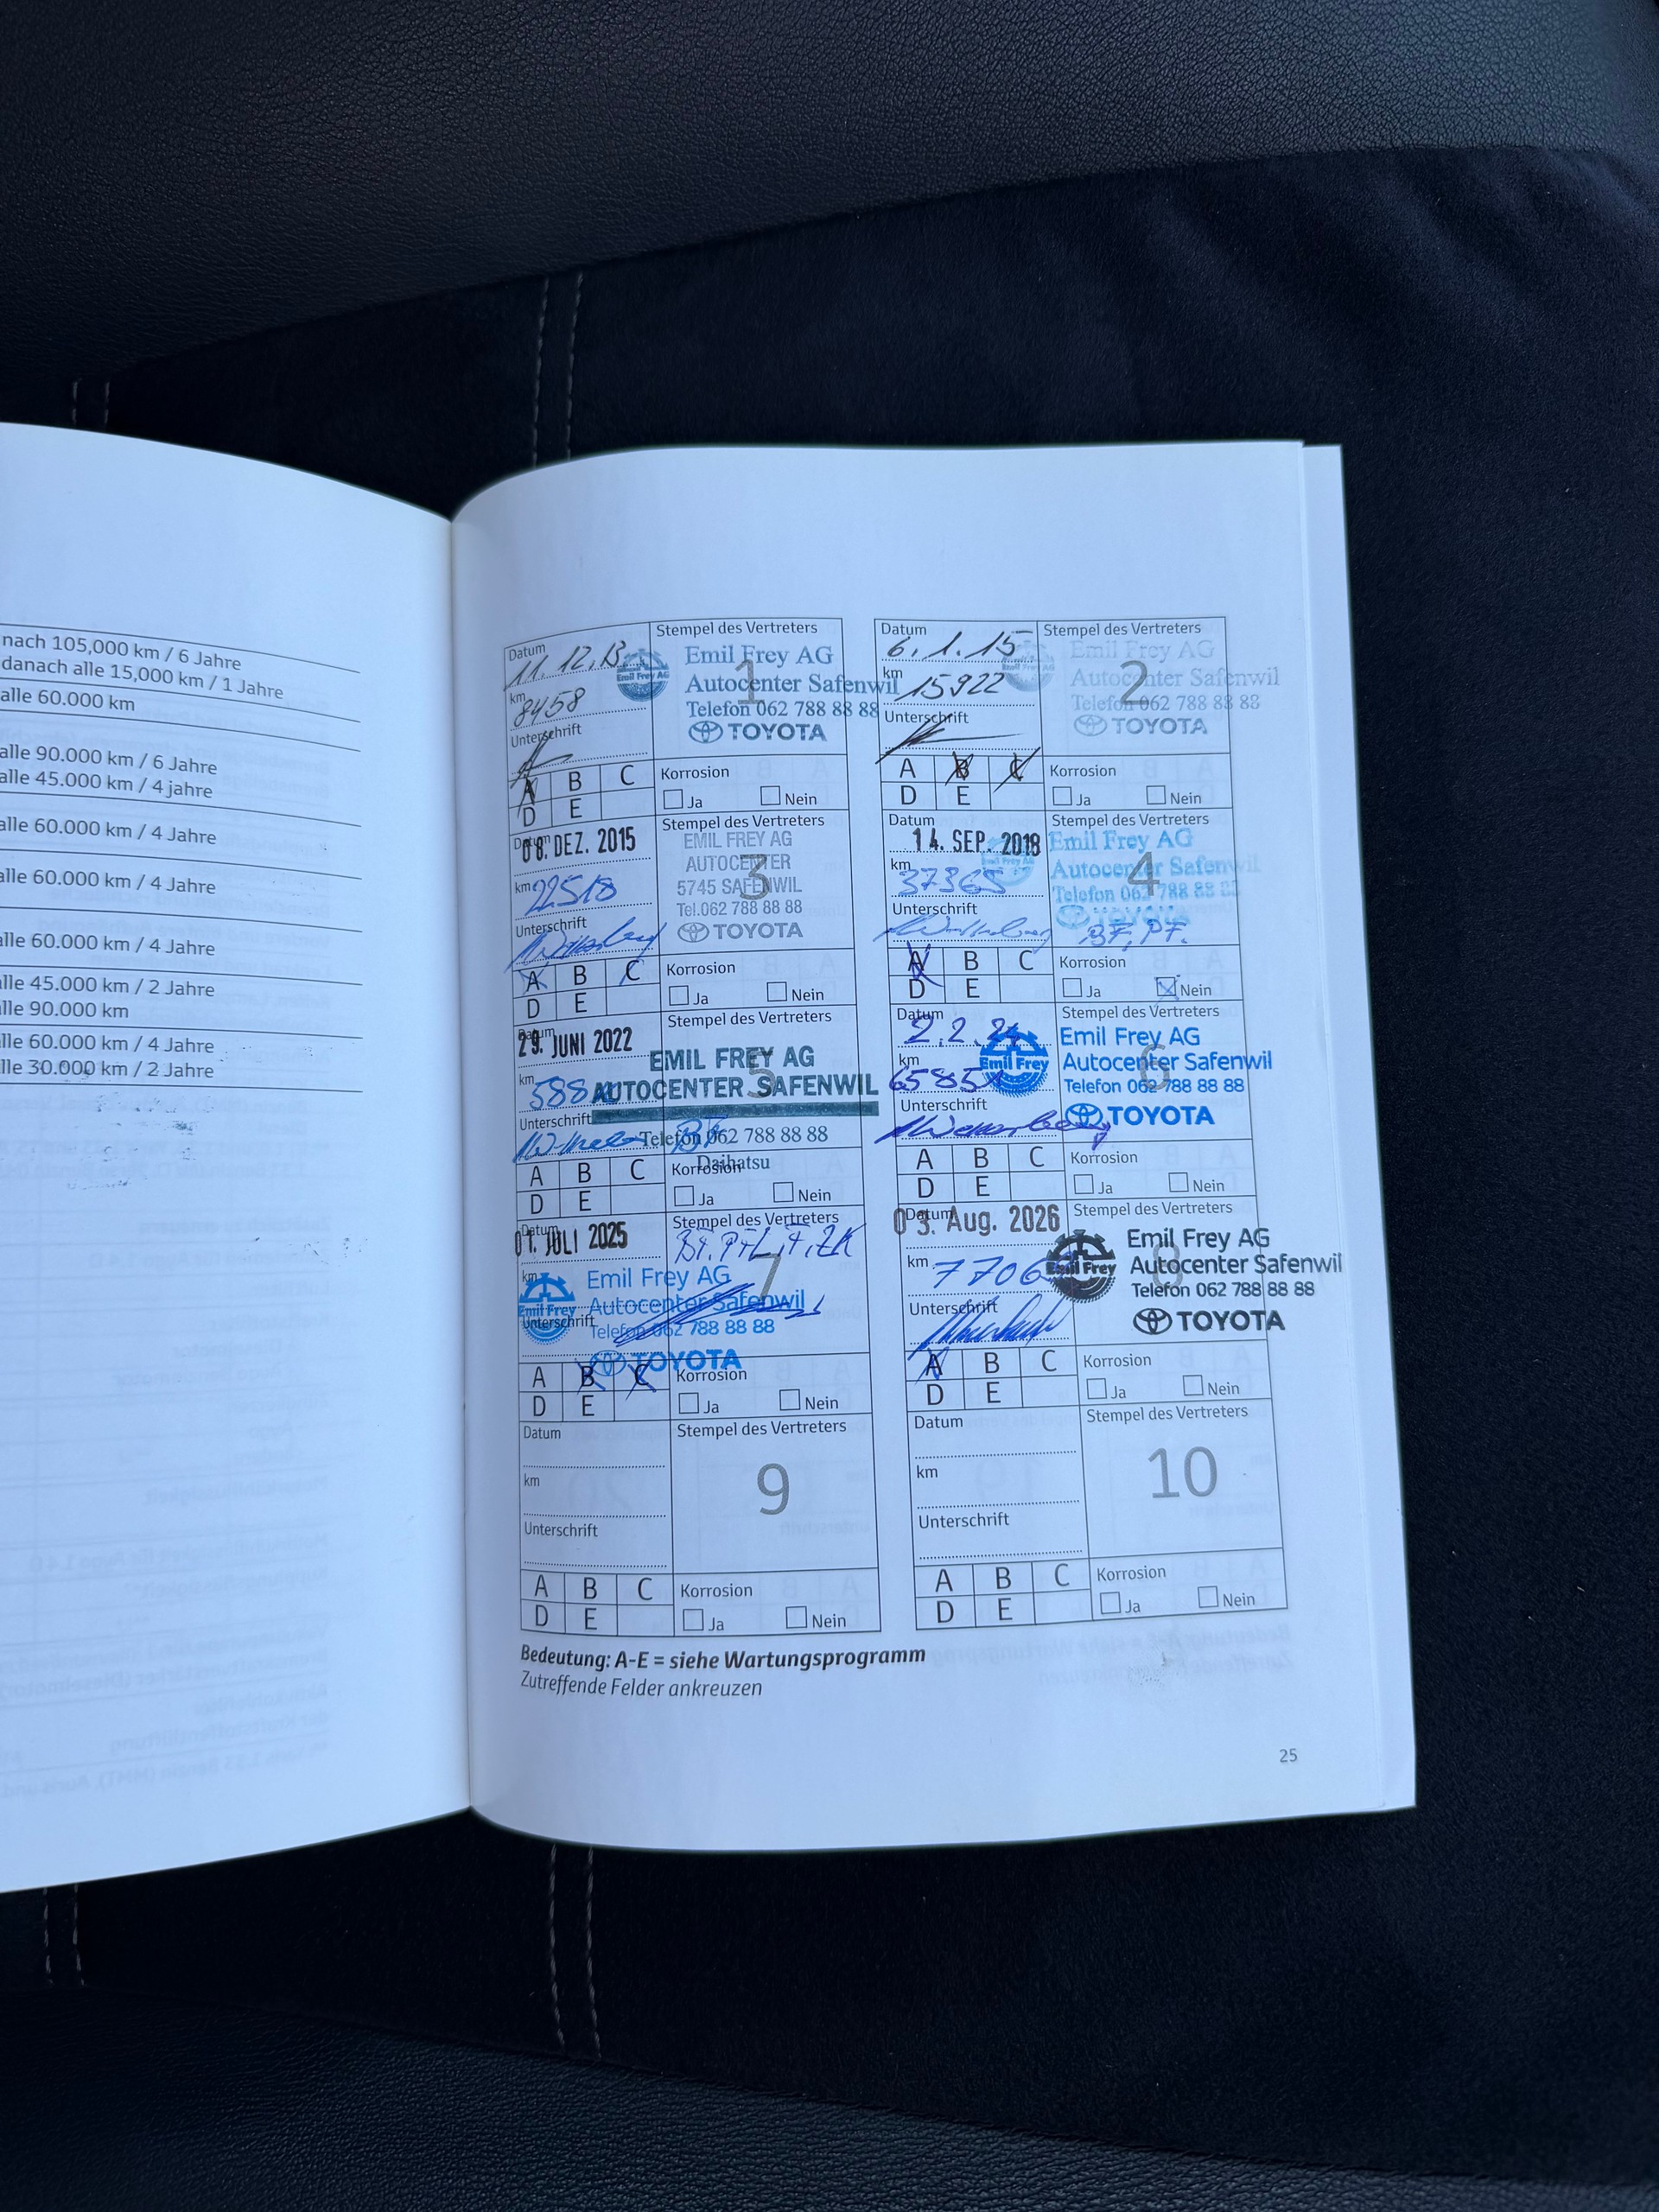 nach 105,000 km / 6 Jahre
danach alle 15,000 km / 1 Jahre
alle 60.000 km
alle 90.000 km / 6 Jahre
alle 45.000 km / 4 jahre
alle 60.000 km / 4 Jahre
alle 60.000 km / 4 Jahre
alle 60.000 km / 4 Jahre
alle 45.000 km / 2 Jahre
alle 90.000 km
alle 60.000 km / 4 Jahre
alle 30.000 km / 2 Jahre
Datum
11.12.13
km
8458
Unterschrift
Stempel des Vertreters
1
Emil Frey
Emil Frey AG
Autocenter Safenwil
Telefon 062 788 88 88
TOYOTA
A B C
D E
Korrosion
Ja Nein
Datum
6.1.15
km
15922
Unterschrift
Stempel des Vertreters
2
Emil Frey AG
Autocenter Safenwil
Telefon 062 788 88 88
TOYOTA
A B C
D E
Korrosion
Ja Nein
Datum
08. DEZ. 2015
km
22518
Unterschrift
Stempel des Vertreters
3
EMIL FREY AG
AUTOCENTER
5745 SAFENWIL
Tel.062 788 88 88
TOYOTA
A B C
D E
Korrosion
Ja Nein
Datum
14. SEP. 2018
km
37365
Unterschrift
Stempel des Vertreters
4
Emil Frey AG
Autocenter Safenwil
Telefon 062 788 88 88
TOYOTA
BF, PF.
A B C
D E
Korrosion
Ja Nein
Datum
29. JUNI 2022
km
Unterschrift
Stempel des Vertreters
5
EMIL FREY AG
AUTOCENTER SAFENWIL
Telefon 062 788 88 88
BF
Daihatsu
A B C
D E
Korrosion
Ja Nein
Datum
2.2.24
km
Unterschrift
Stempel des Vertreters
6
Emil Frey
Emil Frey AG
Autocenter Safenwil
Telefon 062 788 88 88
TOYOTA
A B C
D E
Korrosion
Ja Nein
Datum
01. JULI 2025
km
Unterschrift
Stempel des Vertreters
7
Emil Frey
Emil Frey AG
Autocenter Safenwil
Telefon 062 788 88 88
TOYOTA
A B C
D E
Korrosion
Ja Nein
Datum
03. Aug. 2026
km
Unterschrift
Stempel des Vertreters
8
Emil Frey
Emil Frey AG
Autocenter Safenwil
Telefon 062 788 88 88
TOYOTA
A B C
D E
Korrosion
Ja Nein
Datum
km
Unterschrift
Stempel des Vertreters
9
A B C
D E
Korrosion
Ja Nein
Datum
km
Unterschrift
Stempel des Vertreters
10
A B C
D E
Korrosion
Ja Nein
Bedeutung: A-E = siehe Wartungsprogramm
Zutreffende Felder ankreuzen
25